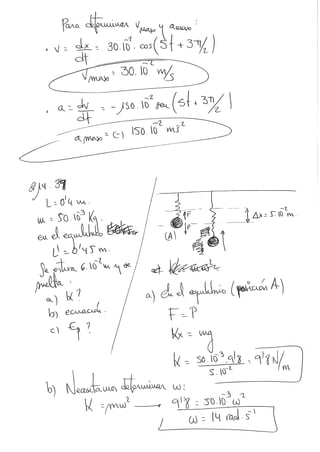 Para determinar vmaxo y amaxo:
· v = dx/dt = 30.10⁻². cos(5t + 3π/2)
vmaxo = 30.10⁻² m/s
· a = dv/dt = -150.10⁻² sen(5t + 3π/2)
amaxo = (-) 150 10⁻² ms⁻²
14.39
L = 0'4 m.
m = 50.10⁻³ Kg.
en el equilibrio
L' = 0'45 m.
Se estira 6.10⁻² m y se
suelta:
a) K?
b) ecuación.
c) Ep?
F
P
(A)
Δx = 5.10⁻² m.
a) En el equilibrio (posición A)
F = P
Kx = mg
K = 50.10⁻³.9'8/5.10⁻² = 9'8 N/m
b) Necesitamos determinar ω:
K = mω² → 9'8 = 50.10⁻³ ω²
ω = 14 rad.s⁻¹